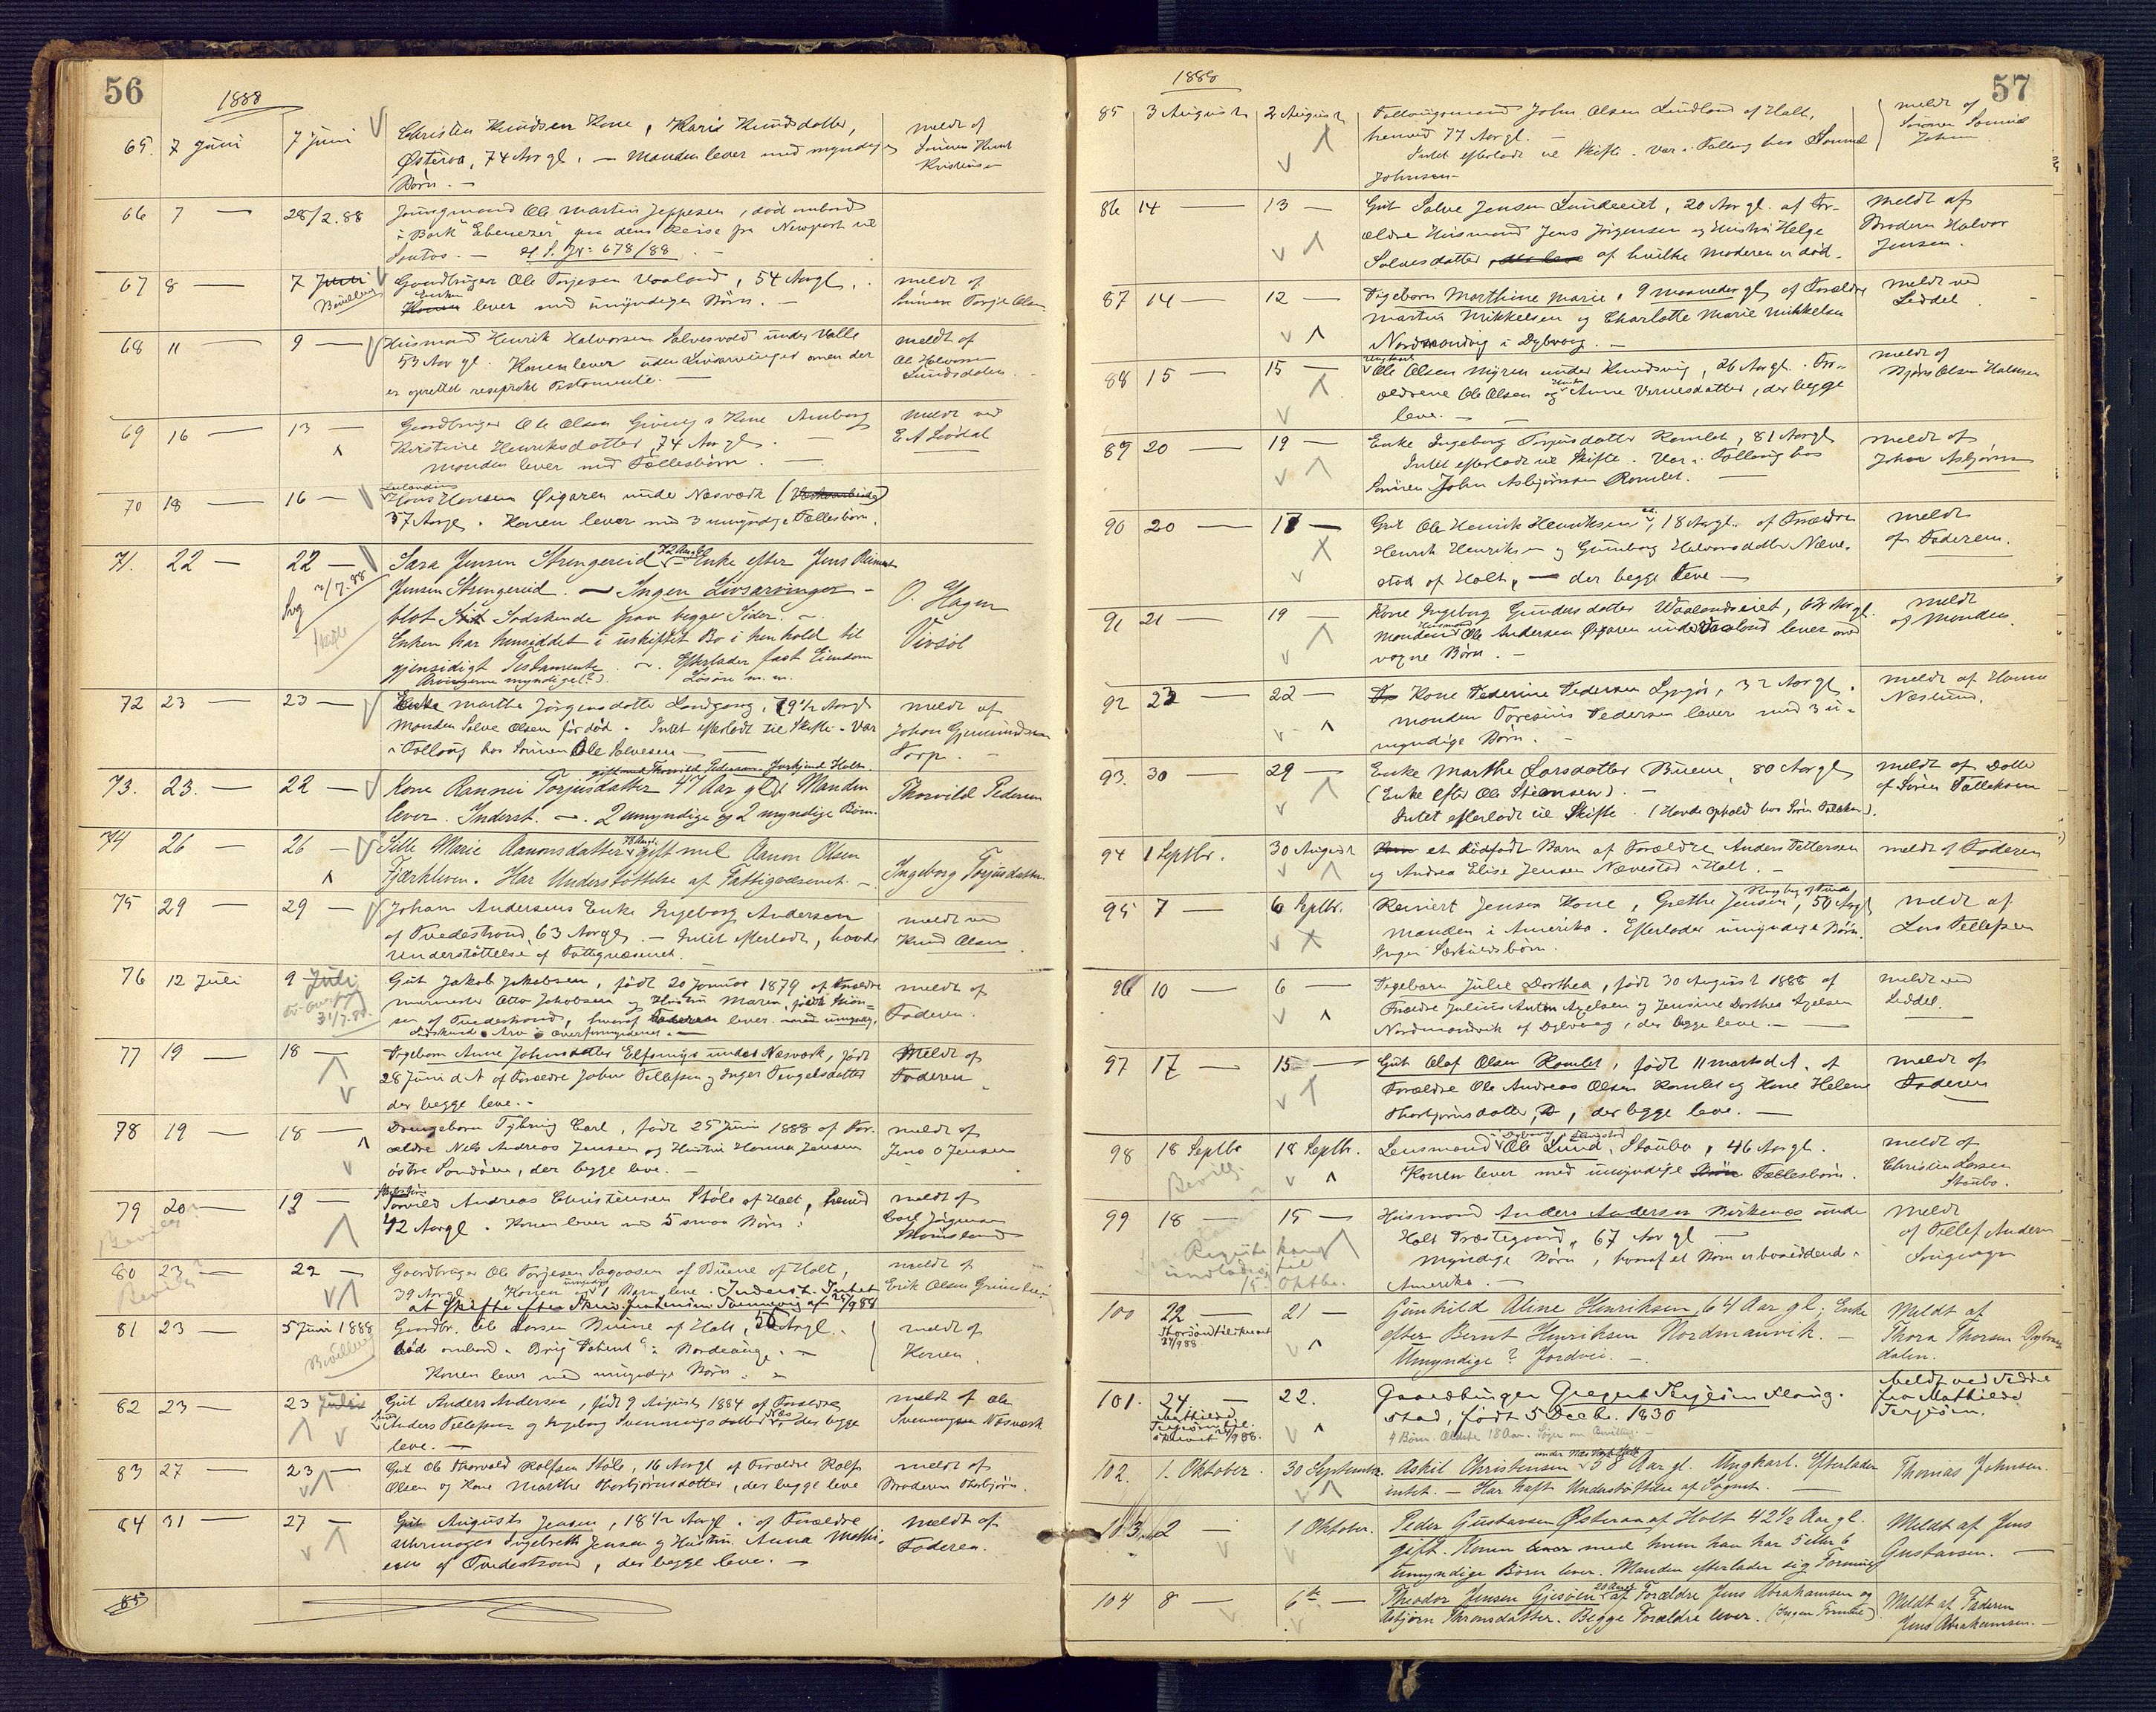 56
1888
65. 7 Juni 7 Juni Christen Knudsen Kone, Karis Knudsdatter, meldt af
Østeraa, 74 Aar gl. — Manden lever med myndige Sønnen Knud
Børn. — Kristensen
66 7 — 28/2.88 Jungmand Ole Martin Jeppesen, død ombord
i Bark "Ebenezer" paa dens Reise fra Newport til
Santos. — cf. S. Jr: 678/88. —
67 8 — 7 Juni Gaardbruger Ole Torjesen Vaaland, 54 Aar gl. meldt af
Bevilling Konen Enken lever med umyndige Børn. — Sønnen Torje Olsen
68 11 — 9 — Husmand Henrik Halvorsen Salvesvold under Valle meldt af
53 Aar gl. Konen lever uden Livsarvinger men der Ole Halvorsen
er oprettet reciprokt Testamente. — Lundsdalen
69 16 — 13 — Gaardbruger Ole Olsen Kone Amborg meldt ved
Kirstine Henriksdatter, 74 Aar gl. — E A Lövdal
Manden lever med Fællesbørn. —
70 18 — 16 — Hans Hansen Øigaren under Næsværk
37 Aar gl. Konen lever med 3 umyndige Fællesbørn.
71. 22 — 22 — Sara Jensen Strengereid 72 Aar gl Enke efter Jens
7/7.88 Jensen Strengereid. — Ingen Livsarvinger — O. Hagen
blot Sødskende paa begge Sider. — Vivsöl
Enken har hensiddet i uskiftet Bo i henhold til
gjensidigt Testamente. —. Efterlader fast Eiendom
Arvingerne myndige(?). Løsøre m. m.
72 23 — 23 — Enke Marthe Jørgensdatter Landgang, 79 1/2 Aar gl meldt af
Manden Salve Olsen før død. Intet efterladt til Skifte. Var Johan Gjermundsen
i Fællaug hos Sønnen Ole Salvesen — Torp.
gift med Thorvild Pedersen Holt.
73. 23. — 22 — Kone Rannei Torjusdatter 47 Aar gl. Manden Thorvild Pedersen
lever. Inderst. —. 2 umyndige og 2 myndige Børn.
74 26 — 26 — Sille Marie Aanonsdatter 78 Aar gl gift med Aanon Olsen
Fjærkleven. Har Understøttelse af Fattigvæsenet. — Ingeborg Torjusdatter
75 29 — 29 — Johan Andersens Enke Ingeborg Andersen meldt ved
af Tvedestrand, 63 Aar gl. — Intet efterladt, havde Knud Olsen
Understøttelse af Fattigvæsenet.
76 12 Juli 9 Juli Gut Jakob Jakobsen, født 20 Januar 1879 af Forældre meldt af
31/7.88. murmester Otto Jakobsen og Hustru Maren, født Faderen.
sen af Tvedestrand, hvoraf Faderen lever
77 19 — 18 — Pigebarn Anne Johnsdatter under Næsværk, født Meldt af
28 Juni d. A af Forældre John Tellefsen og Inger Tengelsdatter Faderen
der begge leve. -
78 19 — 18 — Drengebarn Carl, født 25 Juni 1888 af For- meldt af
ældre Nils Andreas Jensen og Hustru Hanna Jensen Jens O Jensen
østre Sandøen, der begge leve. —
79 20 — 19 — Torvild Andreas Christensen Støle af Holt, henved meldt af
Bevilg. 42 Aar gl. Konen lever med 5 smaa Børn. Carl Jörgensen
80 23 — 22 — Gaardbruger Ole Torjesen af Buene af Holt, meldt af
Bevilg. 39 Aar gl. Konen med umyndige 1 Barn leve. Inderst. Intet Erik Olsen
at Skifte
81 23 — 5 Juni 1888 Gaardbr. Ole Larsen Buene af Holt, 56 Aar gl. meldt af
Bevilling død ombord i Brig Patent Konen.
Konen lever med umyndige Børn.
82 23 — 23 Juli Gut Anders Andersen, født 9 August 1884 af Forældre meldt af Ole
Anders Tellefsen og Ingeborg Svenningsdatter Næs der begge Svenningsen Næsværk
leve. —
83 27 — 23 — Gut Ole Thorvald Rolfsen Støle, 16 Aar gl af Forældre Rolf meldt af
Olsen og Kone Marthe Thorbjørnsdatter, der begge leve Broderen Thorbjörn.
84 31 — 27 — Gut August Jensen, 18 1/2 Aar gl. af Forældre Meldt af
Uhrmager Ingebreth Jensen og Hustru Anna Mathi- Faderen.
esen af Tvedestrand, der begge leve. —
85
57
1888
85 3 August 2 August Fællaugsmand John Olsen Lindland af Holt, meldt af
henved 77 Aar gl. — Sønnen
Intet efterladt til Skifte. Var i Fællaug hos Johnsen
Johnsen —
86 14 — 13 — Gut Salve Jensen Lundeeiet, 20 Aar gl. af For- Meldt af
ældre Husmand Jens Jörgensen og Hustru Helge Broderen Halvor
Salvesdatter, af hvilke Moderen er død. Jensen.
87 14 12 — Pigebarn Marthine Marie, 9 maaneder gl af Forældre meldt ved
Martin Mikkelsen og Charlotte Marie Mikkelsen Seddel.
Nordmandvig i Dybvaag. —
88 15 — 15 — Ungkarl Ole Olsen Myren under Knudsvig, 26 Aar gl. For- meldt af
ældrene Ole Olsen og Hustru Anne Vernesdatter, der begge Bjørn Olsen
leve. —
89 20 — 19 — Enke Ingeborg Torjusdatter Ramlet, 81 Aar gl meldt af
Intet efterladt til Skifte. Var i Fællaug hos Johan Asbjørnsen
Sønnen John Asbjørnsen Ramlet.
90 20 — 17 — Gut Ole Henrik Henriksen, 18 Aar gl. af Forældre meldt
Henrik Henriksen og Gunborg Halvorsdatter Næve- af Faderen.
stad af Holt, — der begge leve —
91 21 — 19 — Kone Ingeborg Gundersdatter Vaalandseiet, 62 Aar gl. meldt
Manden Husmand Ole Andersen Øigaren under Vaaland lever med af Manden.
voxne Børn. —
92 22 — 22 — Kone Pederine Pedersen Lyngör, 32 Aar gl. meldt af Hanne
Manden Toresius Pedersen lever med 3 u- Næslund.
myndige Børn. —
93. 30 — 29 — Enke Marthe Larsdatter Buene, 80 Aar gl meldt af Datter
(Enke efter Ole Steensen). — af Sören Tallaksen
Intet efterladt til Skifte. (Havde Ophold hos Sören Tallaksen).
94 1 Septbr. 30 August et dødfødt Barn af Forældre Anders Pettersen meldt af Faderen
og Andrea Elise Jensen Nævestad i Holt. —
95 7 — 6 Septbr. Reinert Jensen Kone, Grethe Jensen, 50 Aar gl meldt af
Manden i Amerika. Efterlader umyndige Børn. Lars Tellefsen
Ingen Særkuldsbørn.
96 10 — 6 — Pigebarn Julie Dorthea, født 30 August 1888 af meldt ved
Forældre Julius Anton Axelsen og Jensine Dorthea Axelsen Seddel.
Nordmandvik af Dybvaag, der begge leve. —
97 17 — 15 — Gut Olaf Olsen Ramlet, født 11 Marts d. A. af meldt af
Forældre Ole Andreas Olsen Ramlet og Kone Helene Faderen
Thorbjørnsdatter, der begge leve. —
98 18 Septbr 18 Septbr. Lensmand Ole Lund, Staubø, 46 Aar gl. meldt af
Bevilg. Konen lever med umyndige Fællesbørn. Christen Larsen
Staubø.
99 18 — 15 — Husmand Anders Andersen Birkenæs under meldt
Holt Præstegaard, 67 Aar gl — af Tellef Andersen
myndige Børn, hvoraf et Barn er bosiddende i
Amerika. —
100 22 — 21 — Gunhild Aline Henriksen, 64 Aar gl; Enke Meldt af
efter Bernt Henriksen Nordmanvik. — Thora Thorsen
Umyndige? Jordvei. —. dalen.
101. 24. — 22. Gaardbruger Gregert Terjesen Flang- Meldt ved Seddel
stad, født 5 Decbr. 1830 fra Mathilde
4 Børn. Ældste 18 Aar. Terjesen.
102. 1. Oktober. 30 September. Askil Christensen 58 Aar gl. Ungkarl. Efterlader Thomas Johnsen.
intet. — Har havt Understøttelse af Sognet. —
103. 2 — 1 Oktober. Peder Gustavsen Østeraa af Holt 42 1/2 Aar gl. Meldt af Jens
gift. Konen med hvem han har 5 eller 6 Gustavsen. —
umyndige Børn lever. Manden efterlader sig Formue
104 8 — 6te — Theodor Jensen Gjesøen 20 Aar gl af Forældre Jens Abrahamsen og Meldt af Faderen
Asbjørn Thronsdatter. Begge Forældre lever. (Ingen Formue). Jens Abrahamsen. —